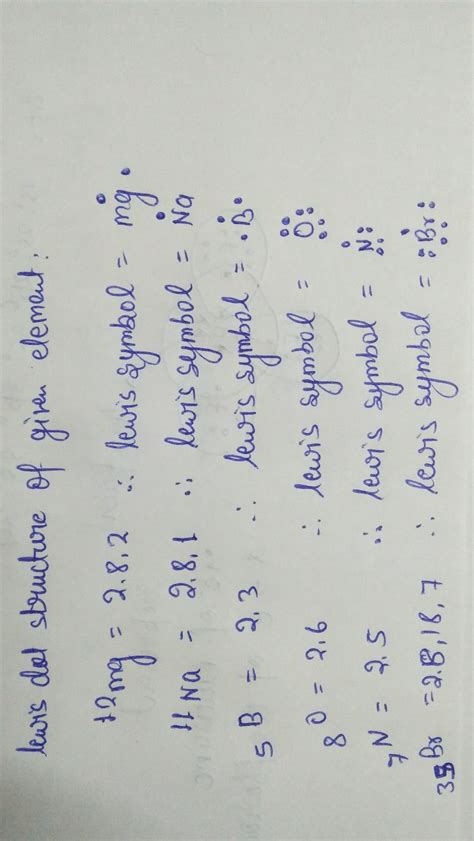 lewis dot structure of given element:
12mg = 2.8.2 ∴ lewis symbol = mg
11Na = 2.8.1 ∴ lewis symbol = Na
5B = 2.3 ∴ lewis symbol = B
8O = 2.6 ∴ lewis symbol = O
7N = 2.5 ∴ lewis symbol = N
35Br = 2.8,18,7 ∴ lewis symbol = Br